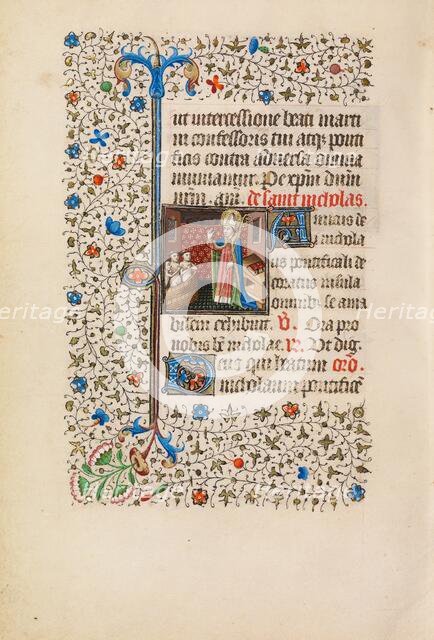 ut intercessione beati marti
ni confessoris tui atq; ponti
ficis contra adversa omnia
muniamur. Per xpm dnm
nrm. am. de saint nicholas.
Amicus dei
nichola
us pontificali de
coratus infula
omnibus se ama
bilem exhibuit. V. Ora pro
nobis be nicholae. R. Ut dig
Deus qui beatum oro.
nicholaum pontifice
Heritage